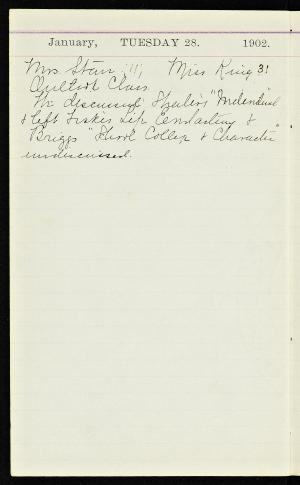 January, TUESDAY 28. 1902.
Mrs. Starr Miss King 31
Class
We discussed "Individual"
& left Fiske's Life Everlasting &
Briggs "School College & Character"
undiscussed.